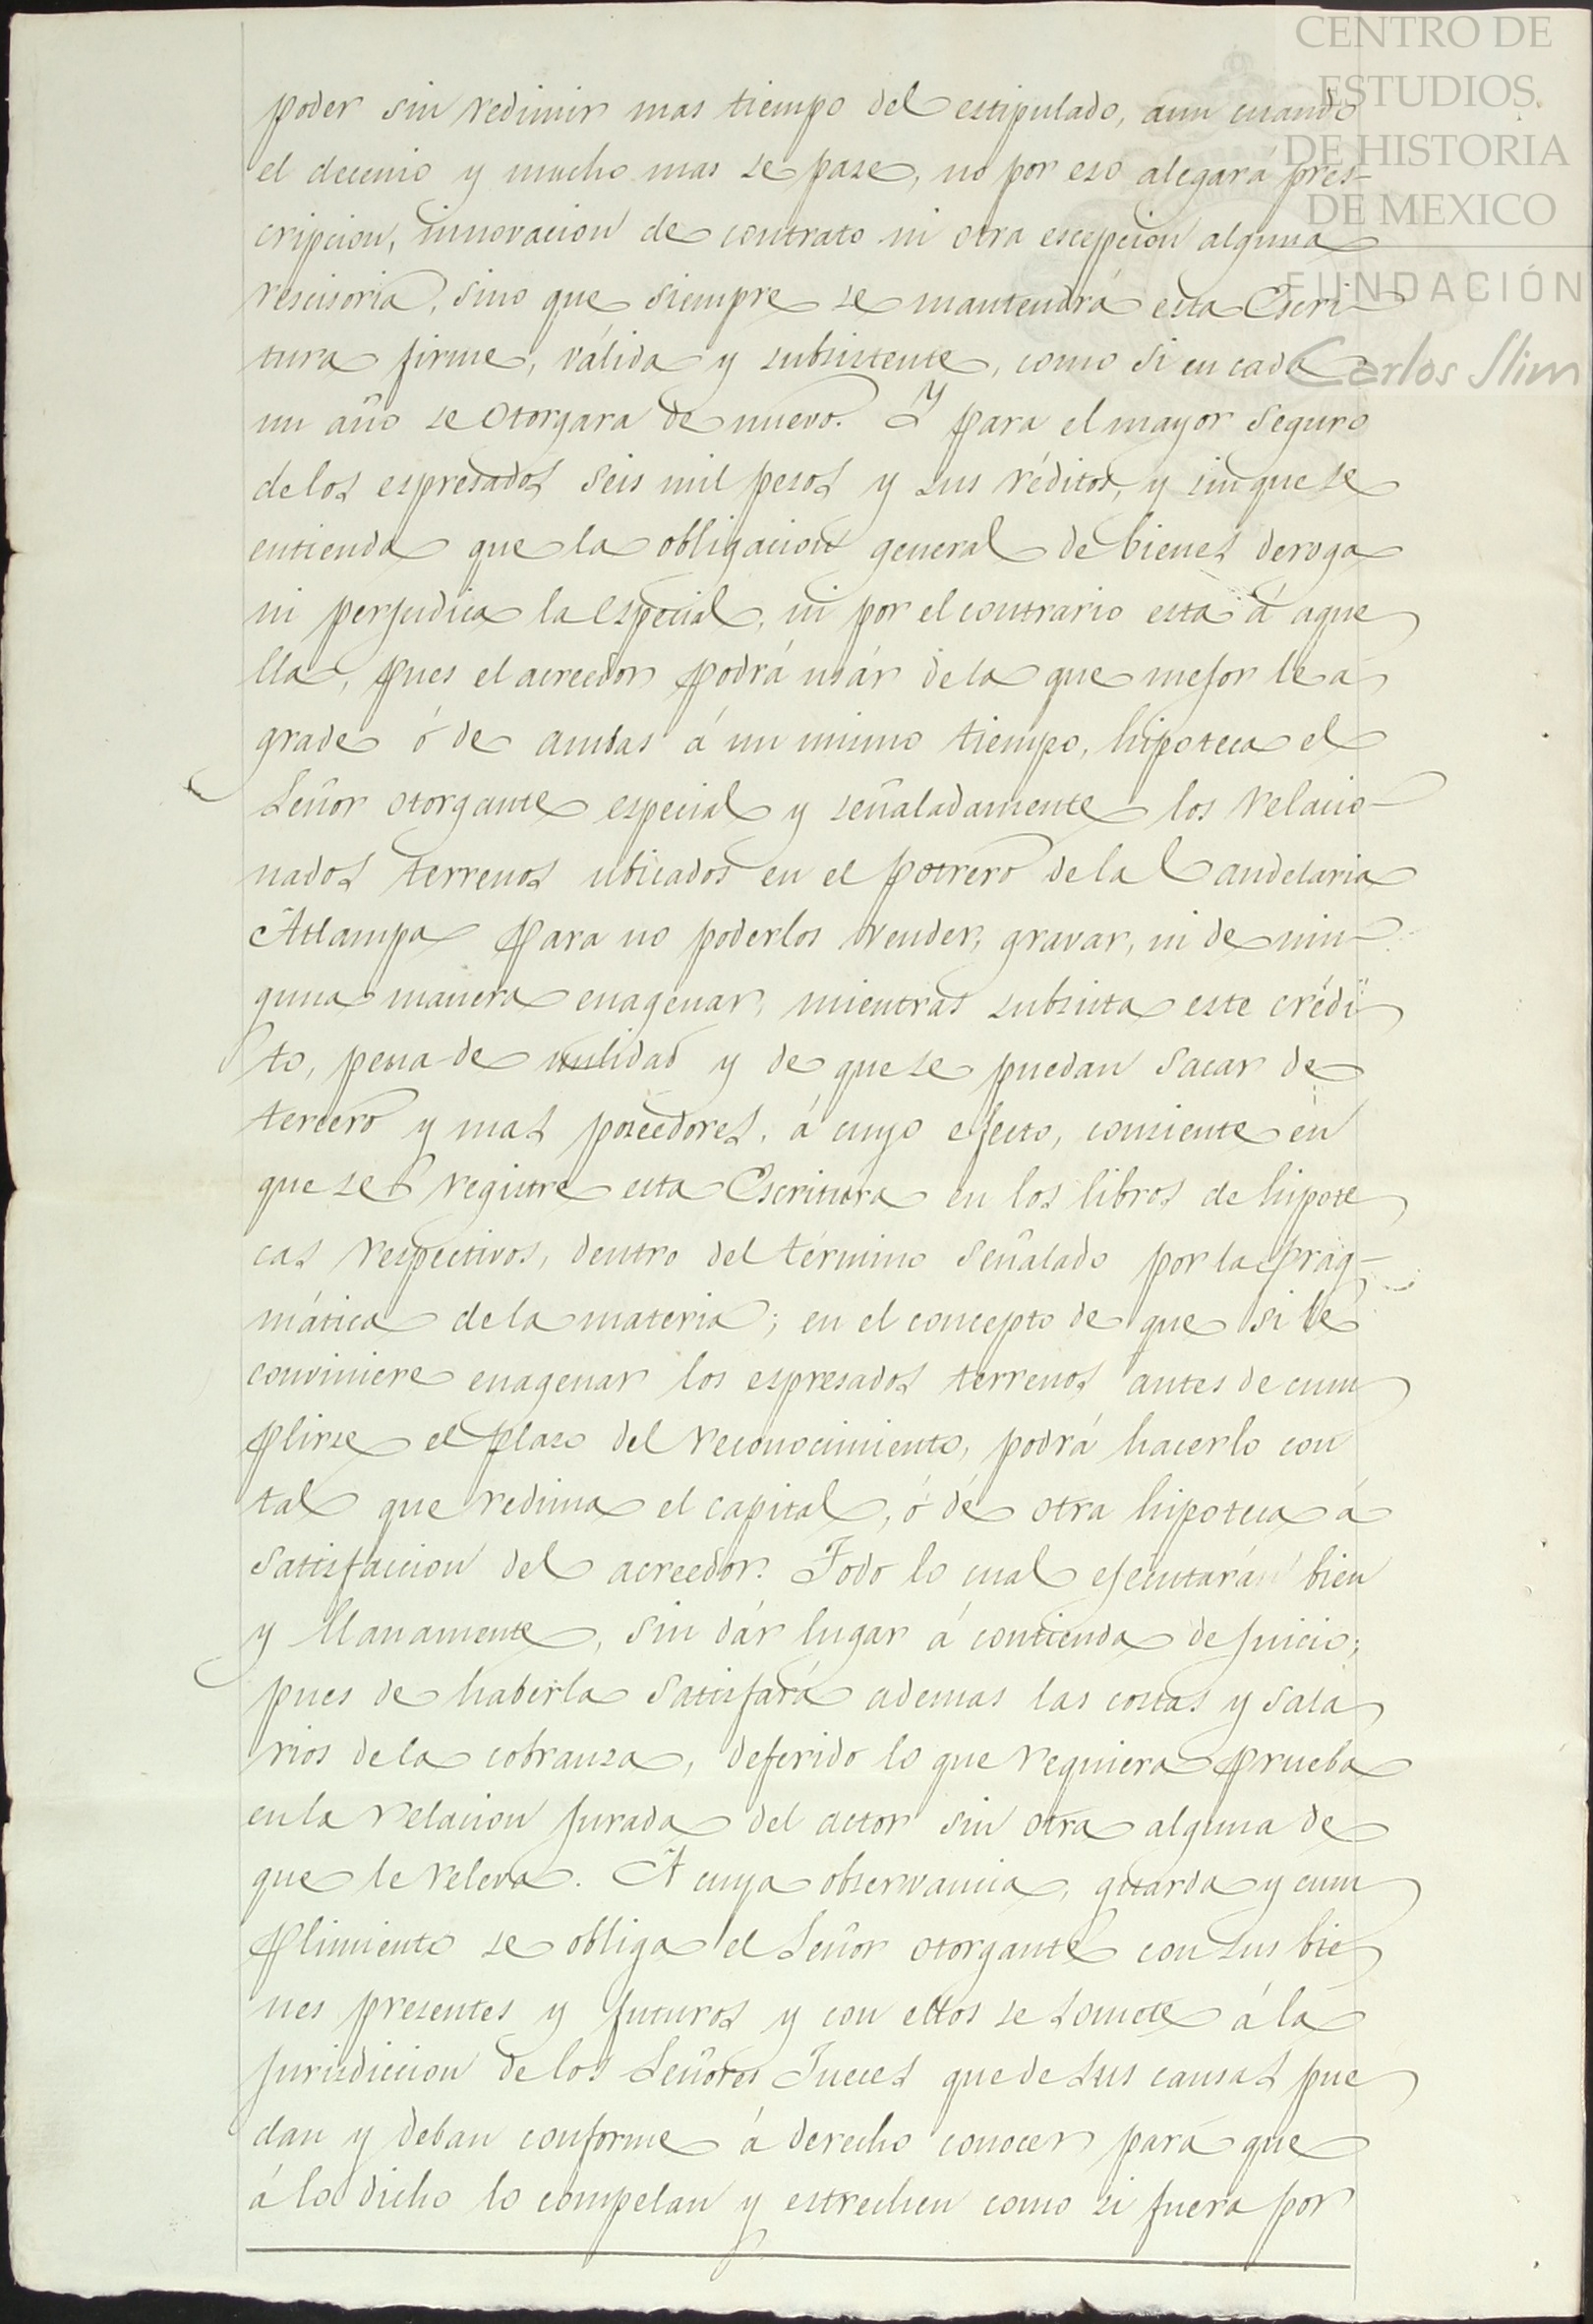 CENTRO DE
ESTUDIOS
DE HISTORIA
DE MEXICO
FUNDACIÓN
Carlos Slim
poder sin redimir mas tiempo del estipulado, aun cuando
el decenio y mucho mas se pase, no por eso alegará pres-
cripcion, innovacion de contrato ni otra escepcion alguna
rescisoria, sino que siempre se mantendrá esta Escri-
tura firme, válida y subsistente, como si en cada
un año se otorgara de nuevo. Y para el mayor seguro
de los espresados seis mil pesos y sus réditos, y sin que se
entienda que la obligacion general de bienes deroga
ni perjudica la especial, ni por el contrario esta á aque
lla, pues el acreedor podrá usár de la que mejor le a
grade ó de ambas á un mismo tiempo, hipoteca el
Señor otorgante especial y señaladamente los relacio-
nados terrenos ubicados en el potrero de la Candelaria
Atlampa para no poderlos vender, gravar, ni de nin-
guna manera enagenar, mientras subsista este crédi
to, pena de nulidad y de que se puedan sacar de
tercero y mas poseedores, á cuyo efecto, consiente en
que se registre esta Escritura en los libros de hipote
cas respectivos, dentro del término señalado por la prag-
mática de la materia; en el concepto de que si le
conviniere enagenar los espresados terrenos antes de cum
plirse el plazo del reconocimiento, podrá hacerlo con
tal que redima el capital, ó dé otra hipoteca á
satisfaccion del acreedor. Todo lo cual ejecutarán bien
y llanamente, sin dár lugar á contienda de juicio;
pues de haberla satisfará ademas las costas y sala
rios de la cobranza, deferido lo que requiera prueba
en la relacion jurada del actor sin otra alguna de
que le releva. A cuya observancia, guarda y cum
plimiento se obliga el Señor otorgante con sus bie
nes presentes y futuros y con ellos se somete á la
jurisdiccion de los Señores Jueces que de sus causas pue
dan y deban conforme á derecho conocer para que
á lo dicho lo compelan y estrechen como si fuera por